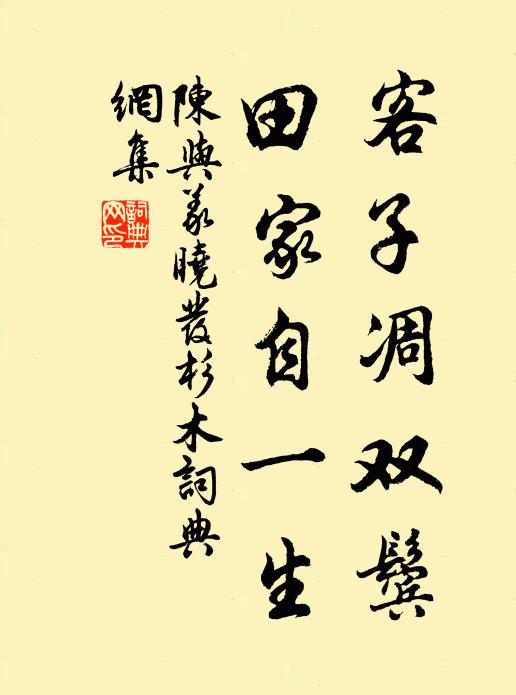 客子凋双鬓
田家自一生
陳與義曉發杉木詞典
網集
詞典
网印